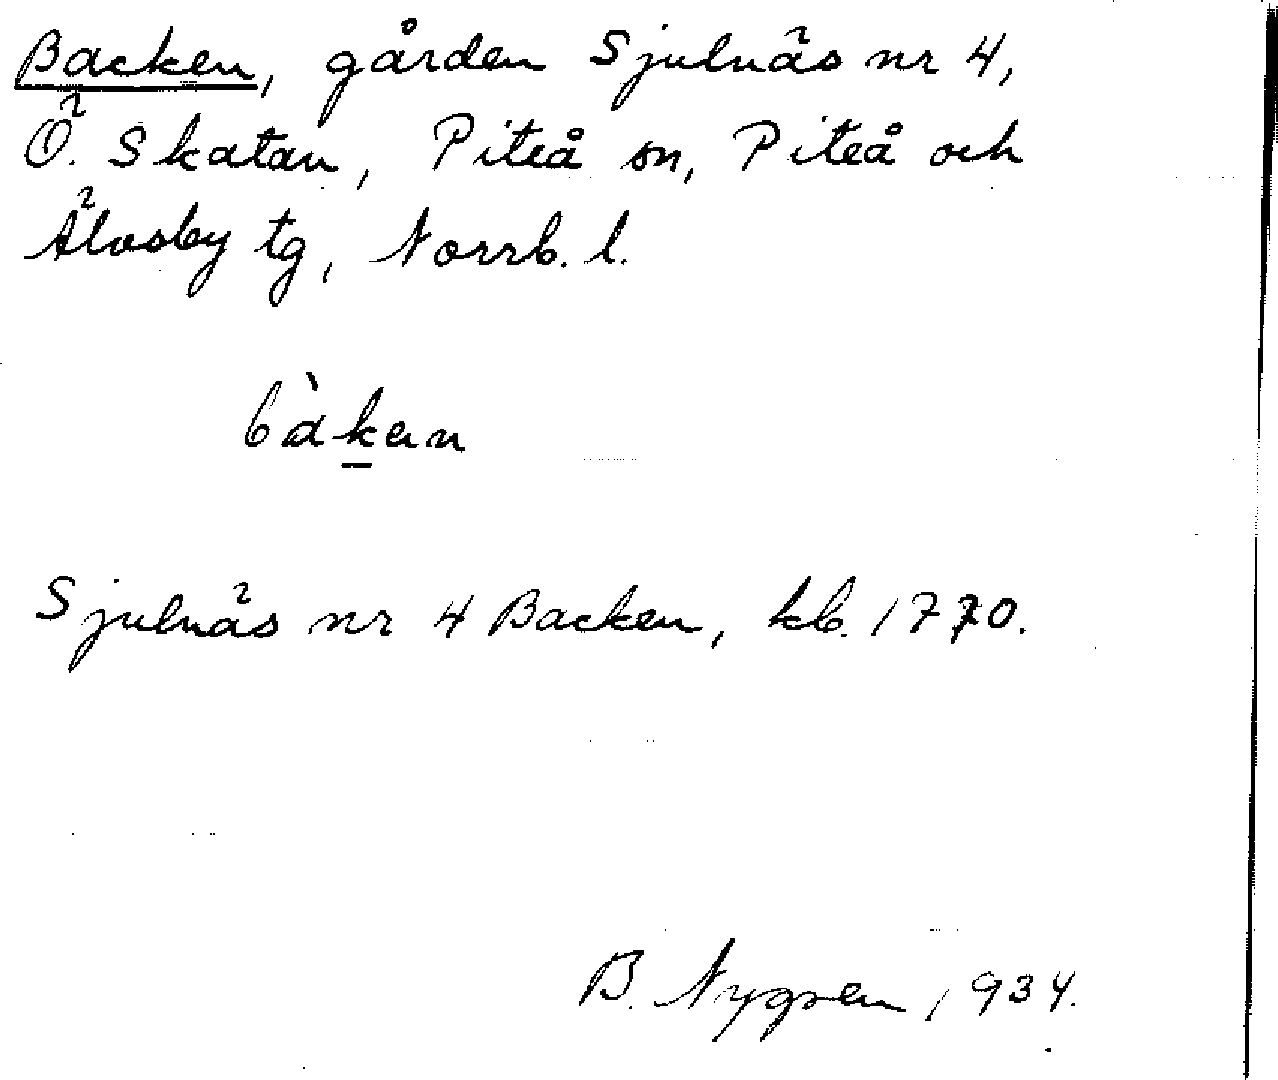 Backen, gården Sjulnäs nr 4,
Ö. Skatan, Piteå sn, Piteå och
Älvsby tg, Norrb. l.
bàken
Sjulnäs nr 4 Backen, kb. 1770.
B. Nygren, 1934.